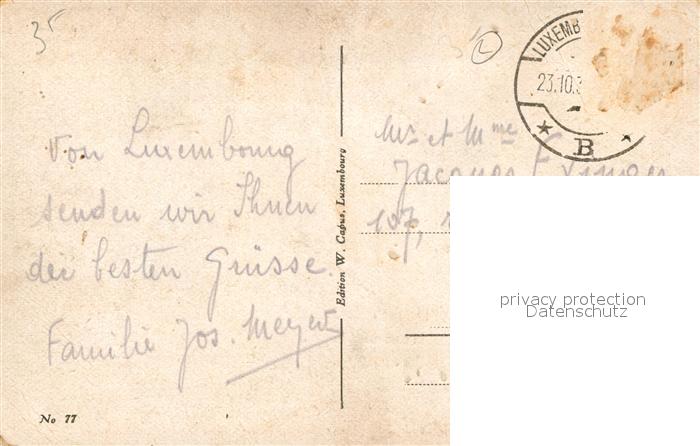 35
L
LUXEMB
23.10.3
B
Von Luxembourg
senden wir Ihnen
die besten Grüsse.
Familie Jos. Meyer
Edition W. Capus, Luxembourg
Mr et Mme
Jacques
107,
privacy protection
Datenschutz
No 77